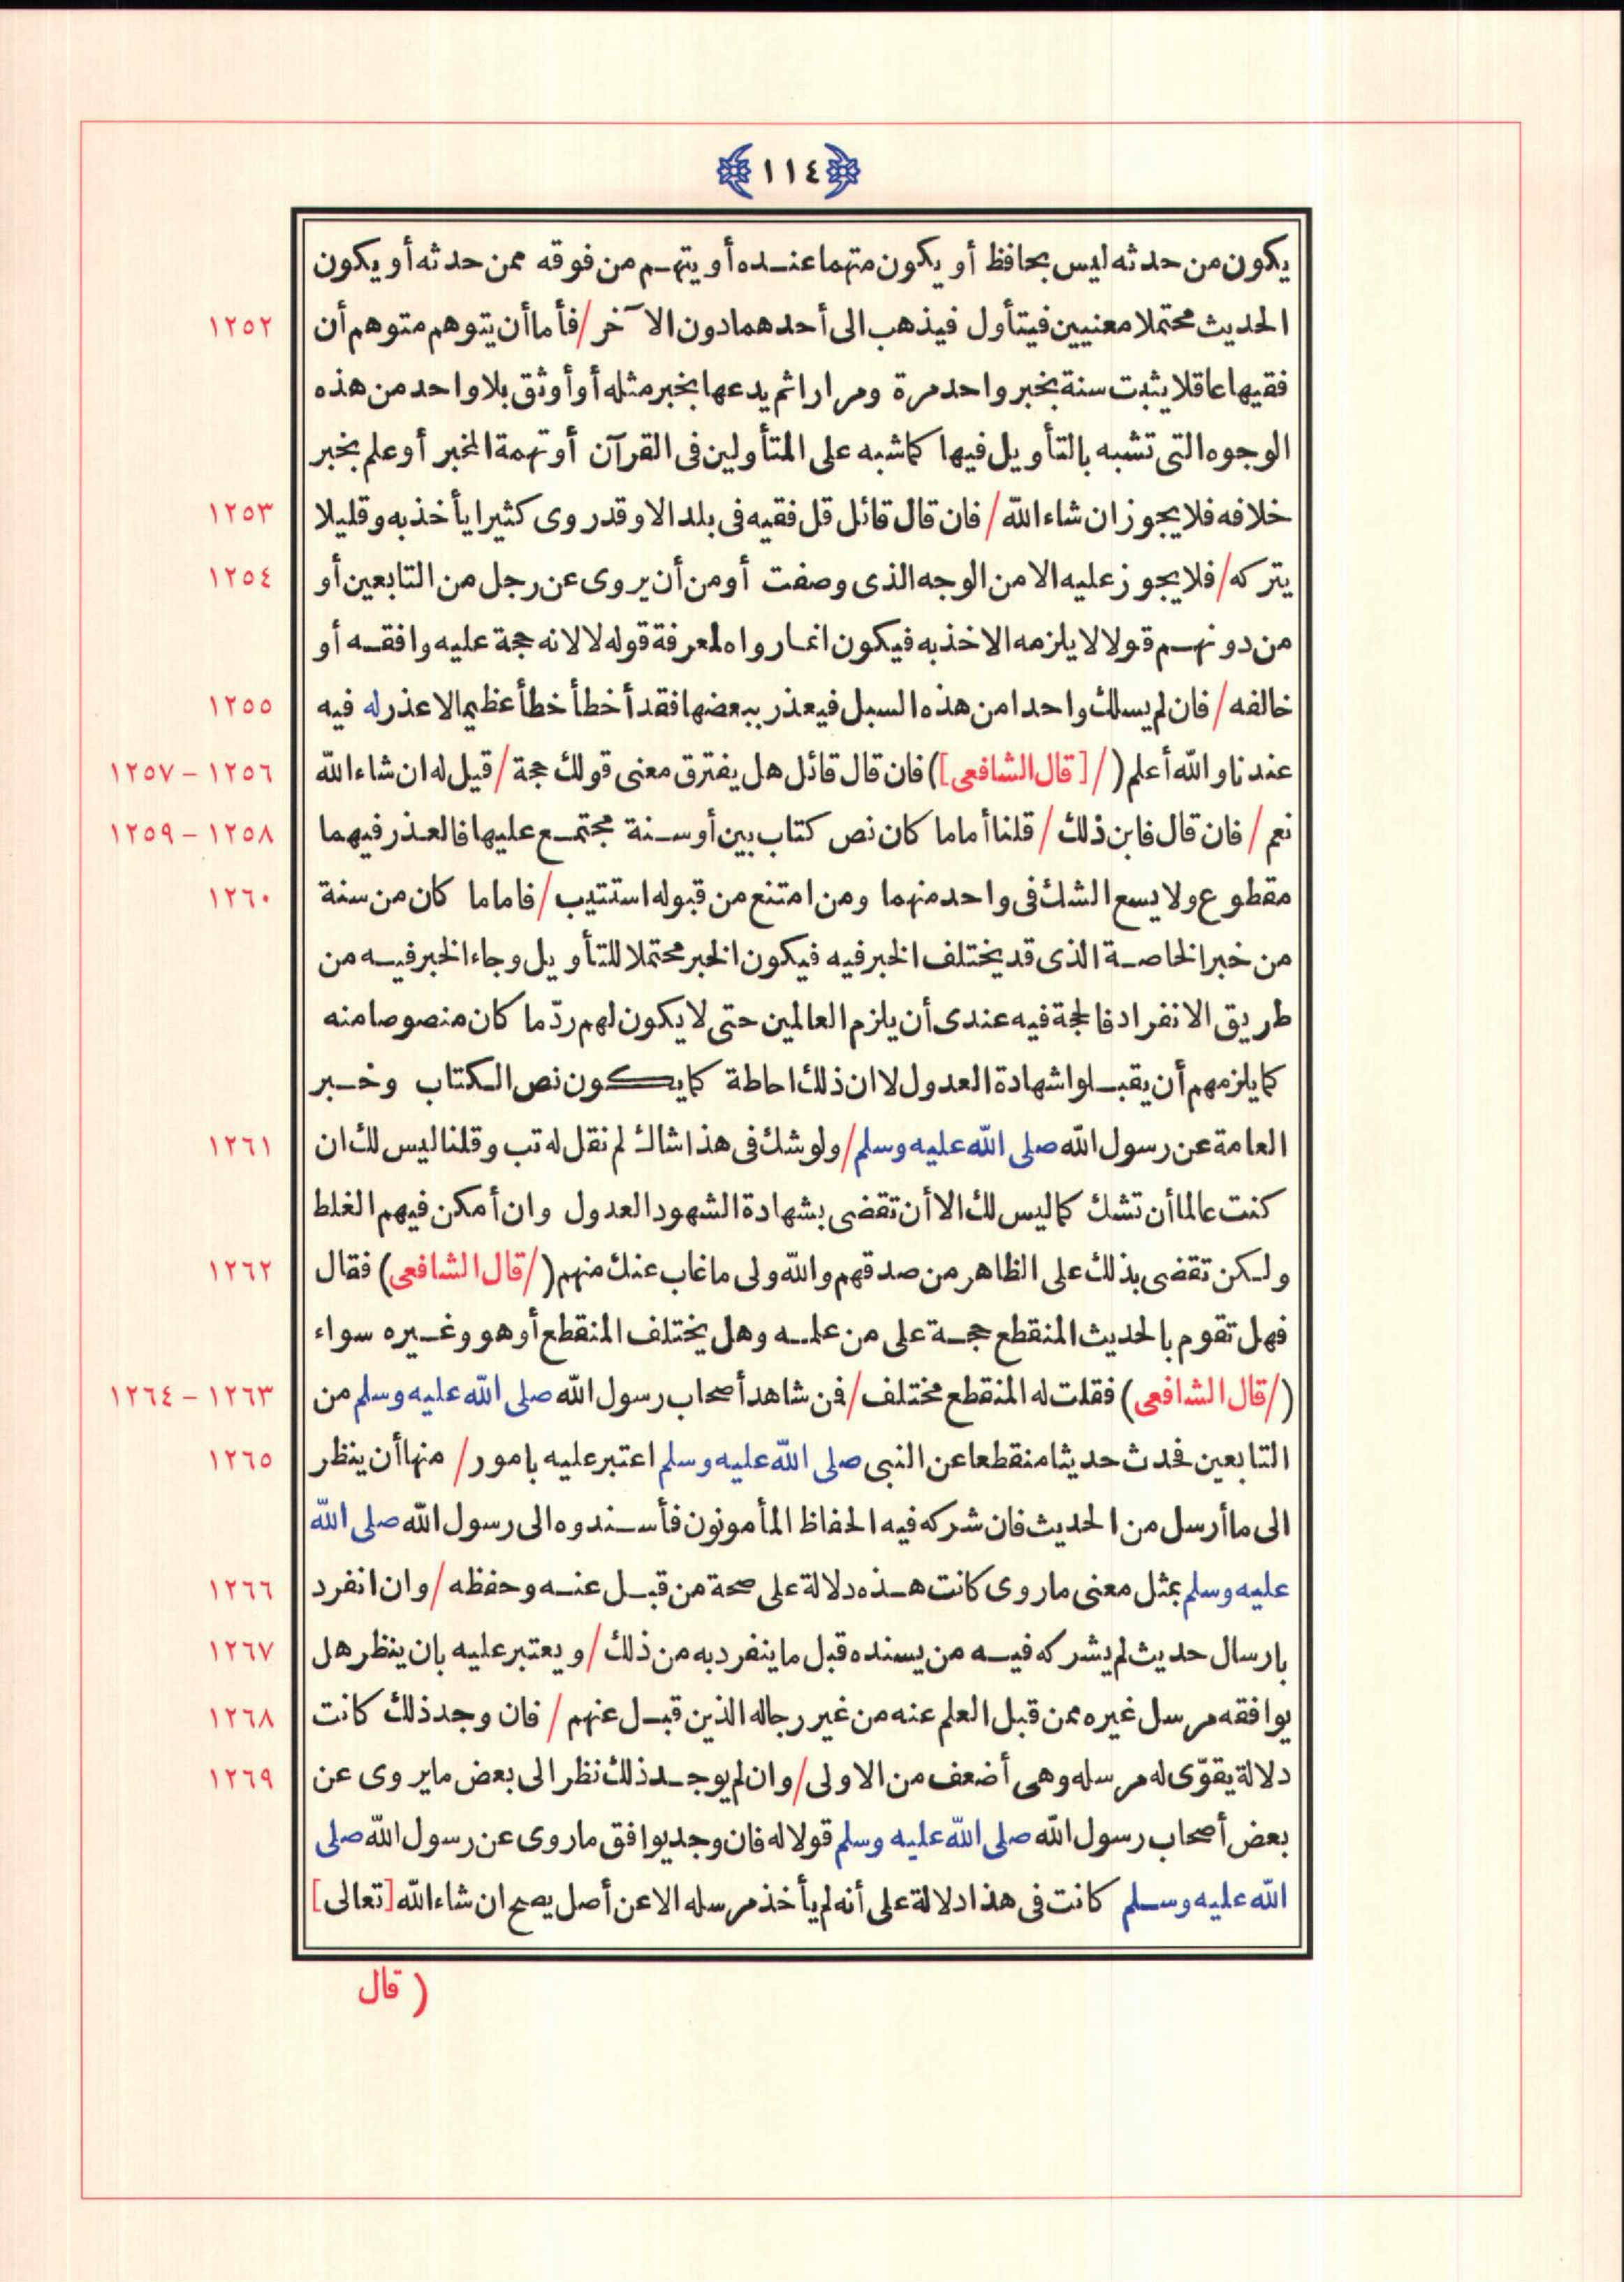 ١١٤
يكون من حدثه ليس بحافظ أو يكون متهما عنده أو يتهم من فوقه ممن حدثه أو يكون
الحديث محتملا معنيين فيتأول فيذهب الى أحدهما دون الآخر / فأما أن يتوهم متوهم أن ١٢٥٢
فقيها عاقلا يثبت سنة بخبر واحد مرة ومرارا ثم يدعها بخبر مثله أو أوثق بلا واحد من هذه
الوجوه التى تشبه بالتأويل فيها كما شبه على المتأولين فى القرآن أو تهمة المخبر أو علم بخبر
خلافه فلا يجوز ان شاء الله / فان قال قائل قل فقيه فى بلد الا وقد روى كثيرا يأخذ به وقليلا ١٢٥٣
يتركه / فلا يجوز عليه الا من الوجه الذى وصفت أو من أن يروى عن رجل من التابعين أو ١٢٥٤
من دونهم قولا لا يلزمه الاخذ به فيكون انما رواه لمعرفة قوله لا لانه حجة عليه وافقه أو
خالفه / فان لم يسلك واحدا من هذه السبل فيعذر ببعضها فقد أخطأ خطأ عظيما لا عذر له فيه ١٢٥٥
عندنا والله أعلم ( / [ قال الشافعى ] ) فان قال قائل هل يفترق معنى قولك حجة / قيل له ان شاء الله ١٢٥٦ - ١٢٥٧
نعم / فان قال فابن ذلك / قلنا أما ما كان نص كتاب بين أو سنة مجتمع عليها فالعذر فيهما ١٢٥٨ - ١٢٥٩
مقطوع ولا يسع الشك فى واحد منهما ومن امتنع من قبوله استتيب / فاما ما كان من سنة ١٢٦٠
من خبر الخاصة الذى قد يختلف الخبر فيه فيكون الخبر محتملا للتأويل وجاء الخبر فيه من
طريق الانفراد فالحجة فيه عندى أن يلزم العالمين حتى لا يكون لهم ردّ ما كان منصوصا منه
كما يلزمهم أن يقبلوا شهادة العدول لا ان ذلك احاطة كما يكون نص الكتاب وخبر
العامة عن رسول الله صلى الله عليه وسلم / ولو شك فى هذا شاك لم نقل له تب وقلنا ليس لك ان ١٢٦١
كنت عالما أن تشك كما ليس لك الا أن تقضى بشهادة الشهود العدول وان أمكن فيهم الغلط
ولكن تقضى بذلك على الظاهر من صدقهم والله ولى ما غاب عنك منهم ( / قال الشافعى ) فقال ١٢٦٢
فهل تقوم بالحديث المنقطع حجة على من علمه وهل يختلف المنقطع أو هو وغيره سواء
( / قال الشافعى ) فقلت له المنقطع مختلف / فمن شاهد أصحاب رسول الله صلى الله عليه وسلم من ١٢٦٣ - ١٢٦٤
التابعين فحدث حديثا منقطعا عن النبى صلى الله عليه وسلم اعتبر عليه بامور / منها أن ينظر ١٢٦٥
الى ما أرسل من الحديث فان شركه فيه الحفاظ المأمونون فأسندوه الى رسول الله صلى الله
عليه وسلم بمثل معنى ما روى كانت هذه دلالة على صحة من قبل عنه وحفظه / وان انفرد ١٢٦٦
بارسال حديث لم يشركه فيه من يسنده قبل ما ينفرد به من ذلك / ويعتبر عليه بان ينظر هل ١٢٦٧
يوافقه مرسل غيره ممن قبل العلم عنه من غير رجاله الذين قبل عنهم / فان وجد ذلك كانت ١٢٦٨
دلالة يقوّى له مرسله وهى أضعف من الاولى / وان لم يوجد ذلك نظر الى بعض ما يروى عن ١٢٦٩
بعض أصحاب رسول الله صلى الله عليه وسلم قولا له فان وجد يوافق ما روى عن رسول الله صلى
الله عليه وسلم كانت فى هذا دلالة على أنه لم يأخذ مرسله الا عن أصل يصح ان شاء الله [ تعالى ]
( قال